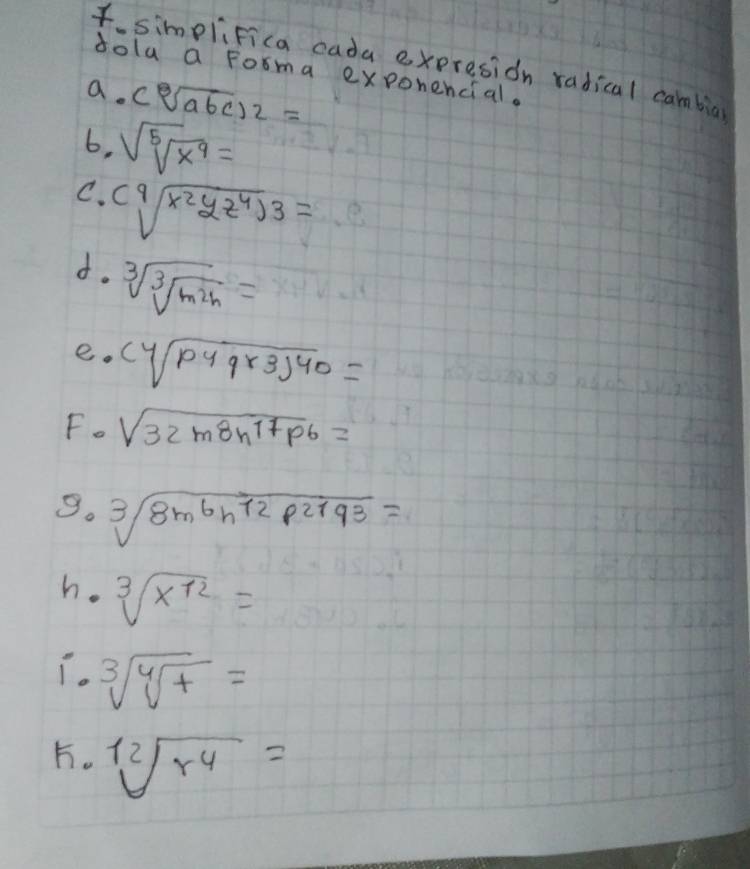 7. simplifica cada expresión radical cambian
dola a Forma exponencial.
a. (⁸√abc)2 =
b. √⁵√x⁹ =
c. (⁹√x²yz⁴)3 =
d. ³√³√m2n =
e. (⁴√p4qr3)40 =
F. √32m8n17p6 =
g. ³√8m6n12p21q3 =
h. ³√x12 =
i. ³√⁴√t =
k. ¹²√r4 =